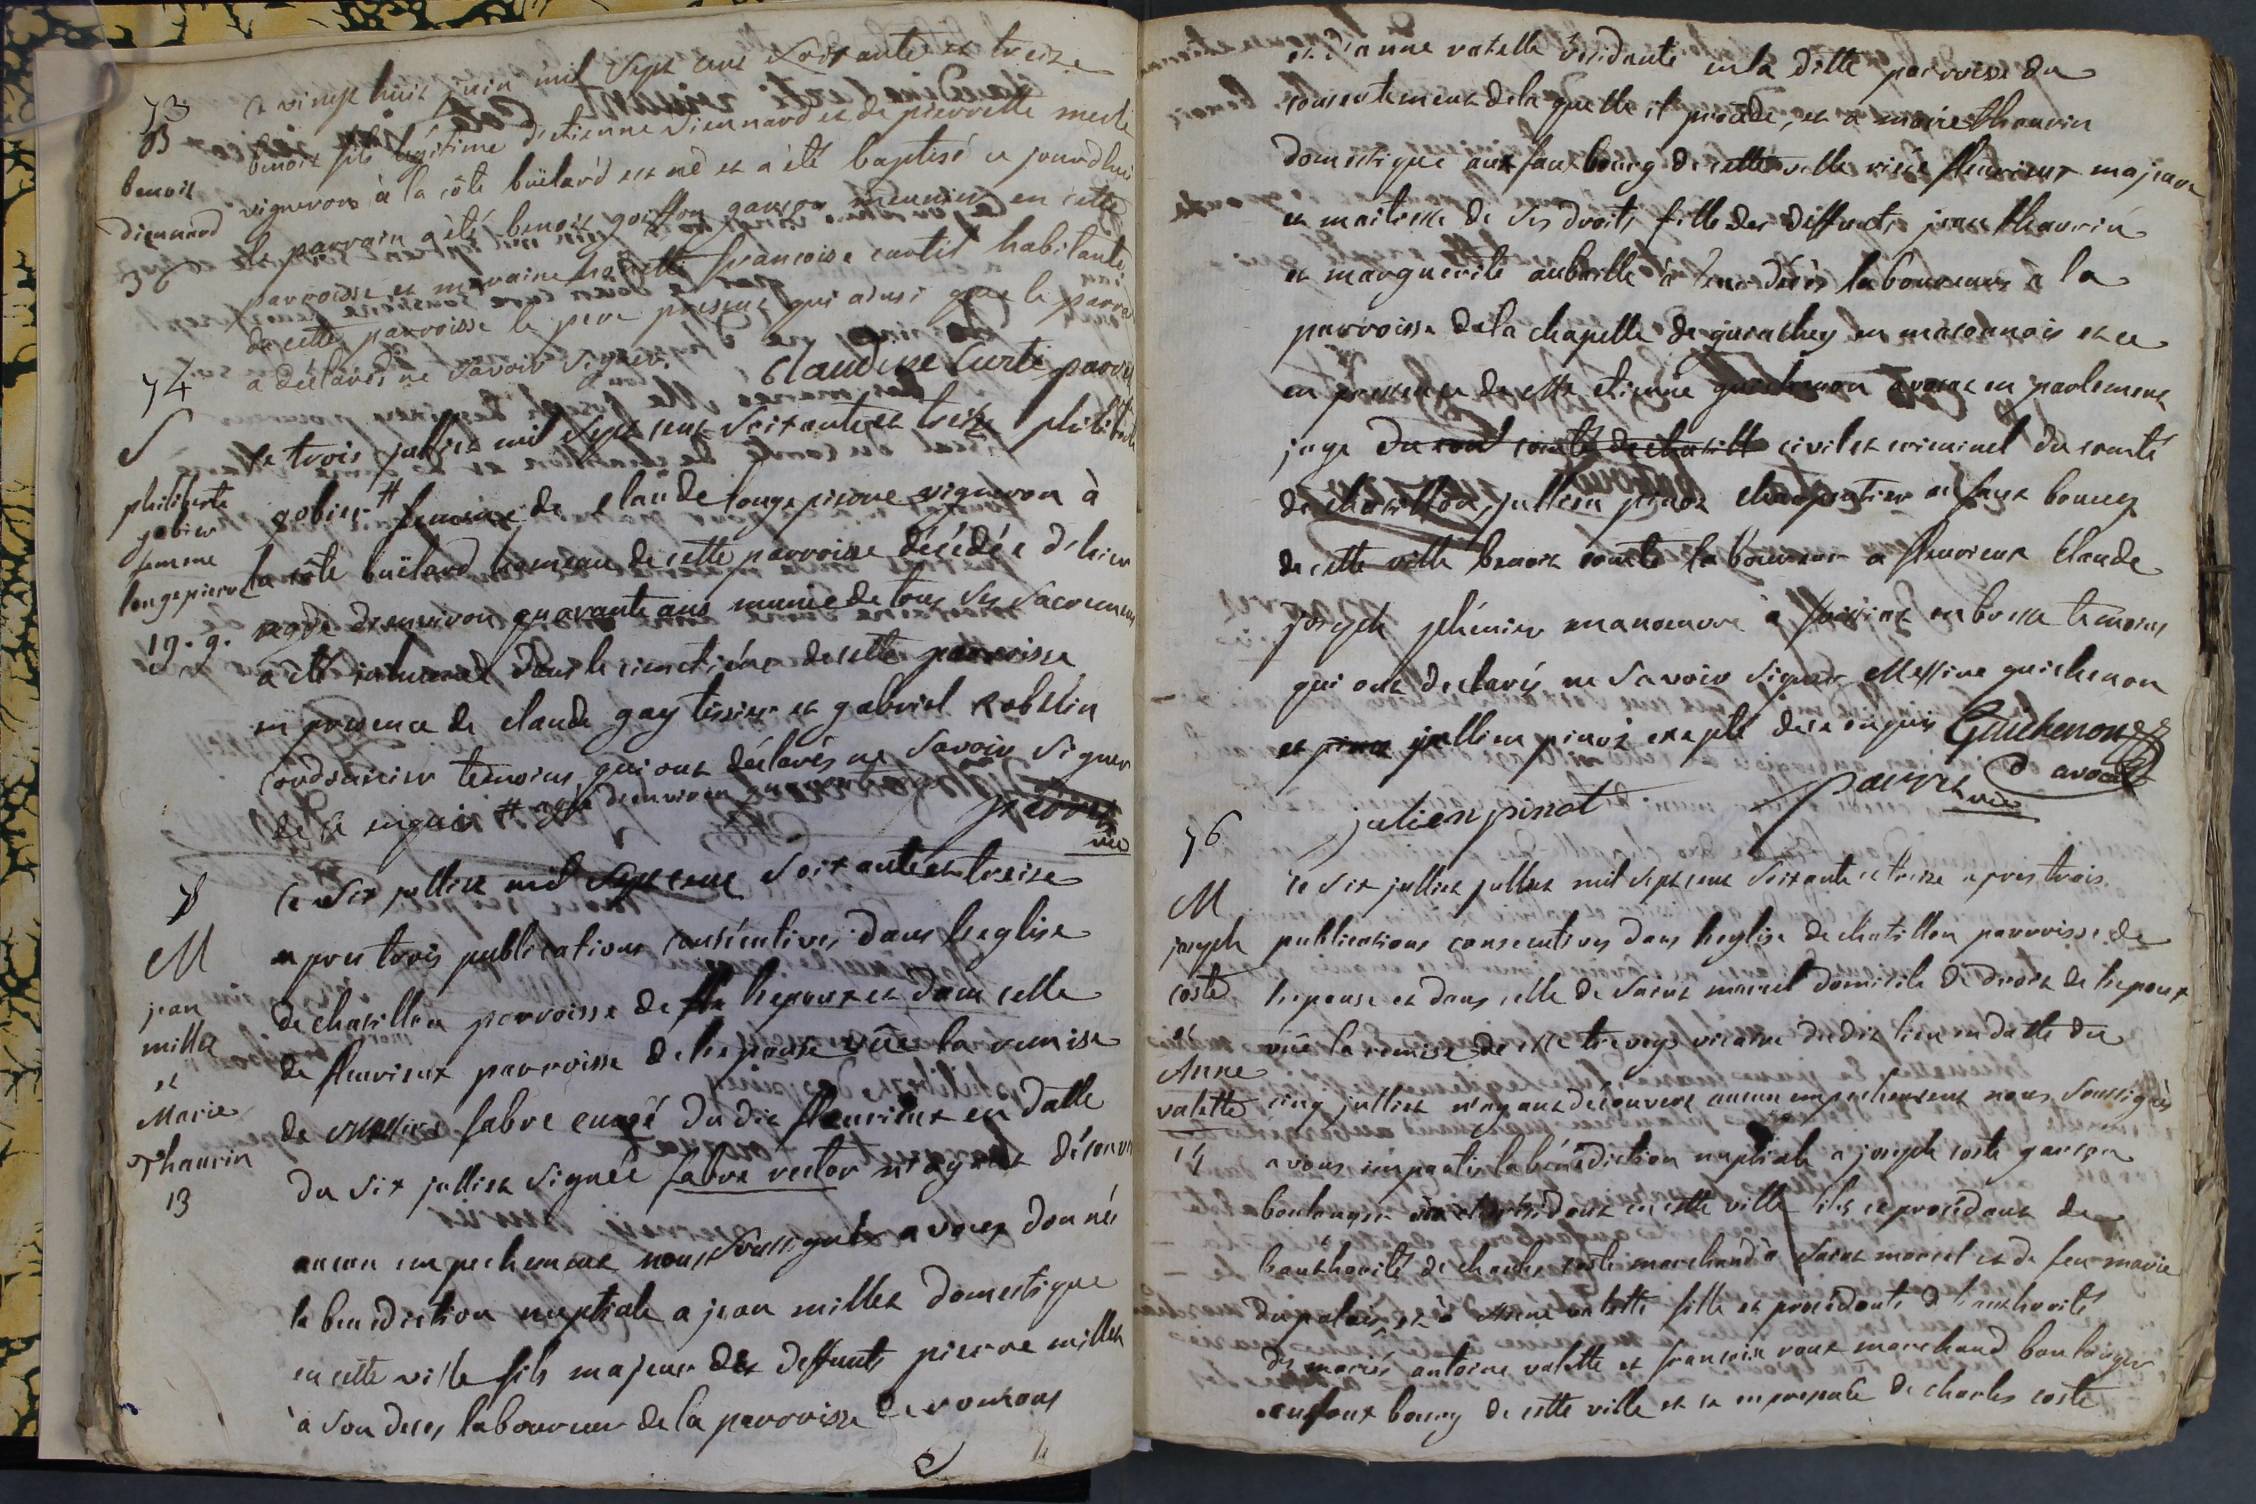 73
B
benoit
diennard
36
ce vingt huit juin mil sept cent soixante et treize
benoit fils légitime d'etienne diennard et de pierrette merle
vigneron à la côte buëlard est né et a été baptisé ce jourd'hui
le parrain a été benoit goiffon garçon meunier en cette
parroisse et maraine françoise curtil habitante
de cette parroisse le pere present qui ainsi que le parrain
a déclaré ne savoir signer. Claudine Curti parret
74
S
philiberte
gobier
femme
longepierre
19. 9.
le trois julliet mil sept cent soixante et treize philiberte
gobier # femme de claude longepierre vigneron à
la côte buëlard hameau de cette parroisse décédée d'hier
agée d'environ quarante ans munie de tous ses sacremens
a été inhumée dans le cimetiére de cette parroisse
en presence de claude gay tissier et gabriel robelin
cordonnier temoins qui ont déclarés ne savoir signer
de ce enquis # agée d'environ
parret
vic
75
M
jean
millet
et
Marie
Thaurin
13
Le six julliet mil sept cent soixante et treize
apres trois publications consécutives dans l'eglise
de chatillon parroisse de l'epoux et dans celle
de fleurieux parroisse de l'epouse vûe la remise
de messire fabre curé du dit fleurieux en datte
du six julliet signée fabre rector n'ayant découvert
aucun empechement nous soussignés avons donnés
la benediction nuptiale a jean millet domestique
en cette ville fils majeur des deffunts pierre millet
à son deces laboureur de la parroisse de vonsons
et d'anne vatelle residente en la ditte parroisse du
consentement de la quelle il procéde, et a marie thaurin
domestique aux faux bourg de cette ville riére fleurieux majeure
et maitresse de ses droits fille des deffunts jean thaurin
et marguerite aubaille à leur décès laboureurs a la
parroisse de la chapelle de guinchey en maconnois et ce
en presence de Mre etienne guichenon avocat en parlement
juge du comté de chatill civil et criminel du comté
de chatillon, jullien pinot charpentier au faux bourg
de cette ville benoit comte laboureur a fleurieux claude
joseph phénier manoeuvre à en bresse temoins
qui ont declarés ne savoir signer Messire guichenon
et pinot jullien pinot excepté de ce enquis Guichenon
avocat
julien pinot parret vic
76
M
joseph
coste
Anne
valette
14
Le six julliet julliet mil sept cent soixante et treize apres trois
publications consecutives dans l'eglise de chatillon parroisse de
l'epouse et dans celle de saint marcel domicile de droit de l'epoux
vûe la remise de Mre trevoy vicaire dudit lieu en datte du
cinq julliet n'ayant découvert aucun empechement nous soussignés
avons imparti la bénédiction nuptiale a joseph coste garçon
boulanger résident en cette ville fils et procédant de
l'authorité de charles coste marchand à saint marcel et de feu marie
dupalais, et à Anne valette fille et procédante de l'authorité
des mariés antoine valette et françoise roux marchand boulanger
au faux bourg de cette ville et ce en presence de charles coste